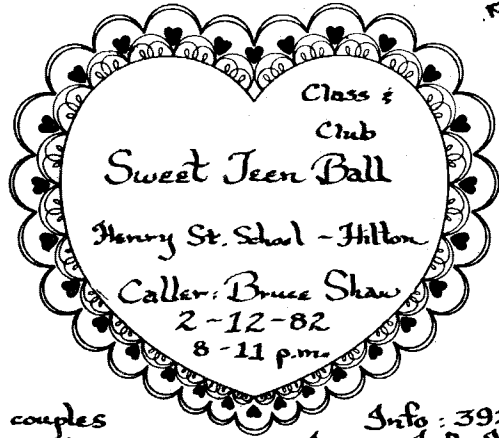 Class &
Club
Sweet Teen Ball
Henry St. School - Hilton
Caller: Bruce Shaw
2-12-82
8-11 p.m.
couples
Info: 392